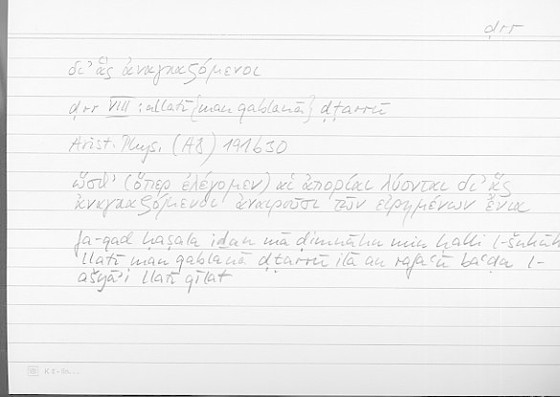 ḍrr
δι' ἃς ἀναγκαζόμενοι
ḍrr VIII : allatī {man qablanā} ḍṭarrū
Arist. Phys. (A8) 191b30
ὥσθ' (ὅπερ ἐλέγομεν) αἱ ἀπορίαι λύονται δι' ἃς
ἀναγκαζόμενοι ἀναιροῦσι τῶν εἰρημένων ἔνια
fa-qad ḥaṣala iḏan mā ḍimnāhu min ḥalli l-šukūk
llatī man qablanā ḍṭarrū ilā an rafaʿū baʿḍa l-
ašyāʾi llatī qīlat